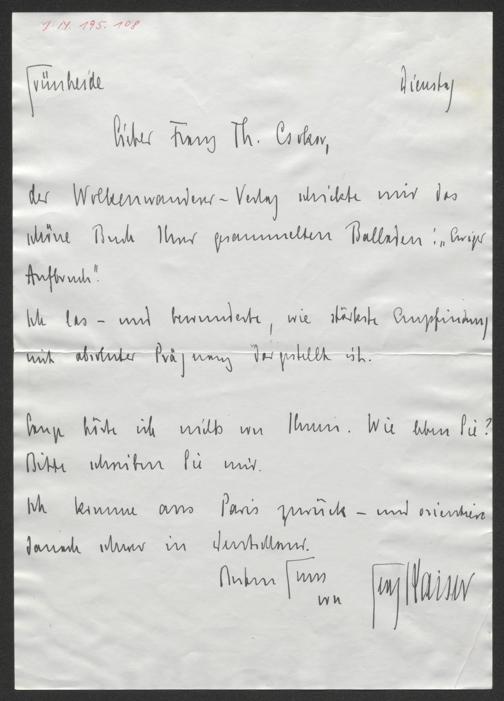 J.N. 195.108
Grünheide Dienstag
Lieber Franz Th. Csokor,
der Wolkenwanderer-Verlag schickte mir das
schöne Buch Ihrer gesammelten Balladen: „Ewiger
Aufbruch".
Ich las – und bewunderte, wie stärkste Empfindung
mit absoluter Prägnanz dargestellt ist.
Lange hörte ich nichts von Ihnen. Wie leben Sie?
Bitte schreiben Sie mir.
Ich komme aus Paris zurück – und orientiere
danach schwer in Deutschland.
Besten Gruss
von Georg Kaiser